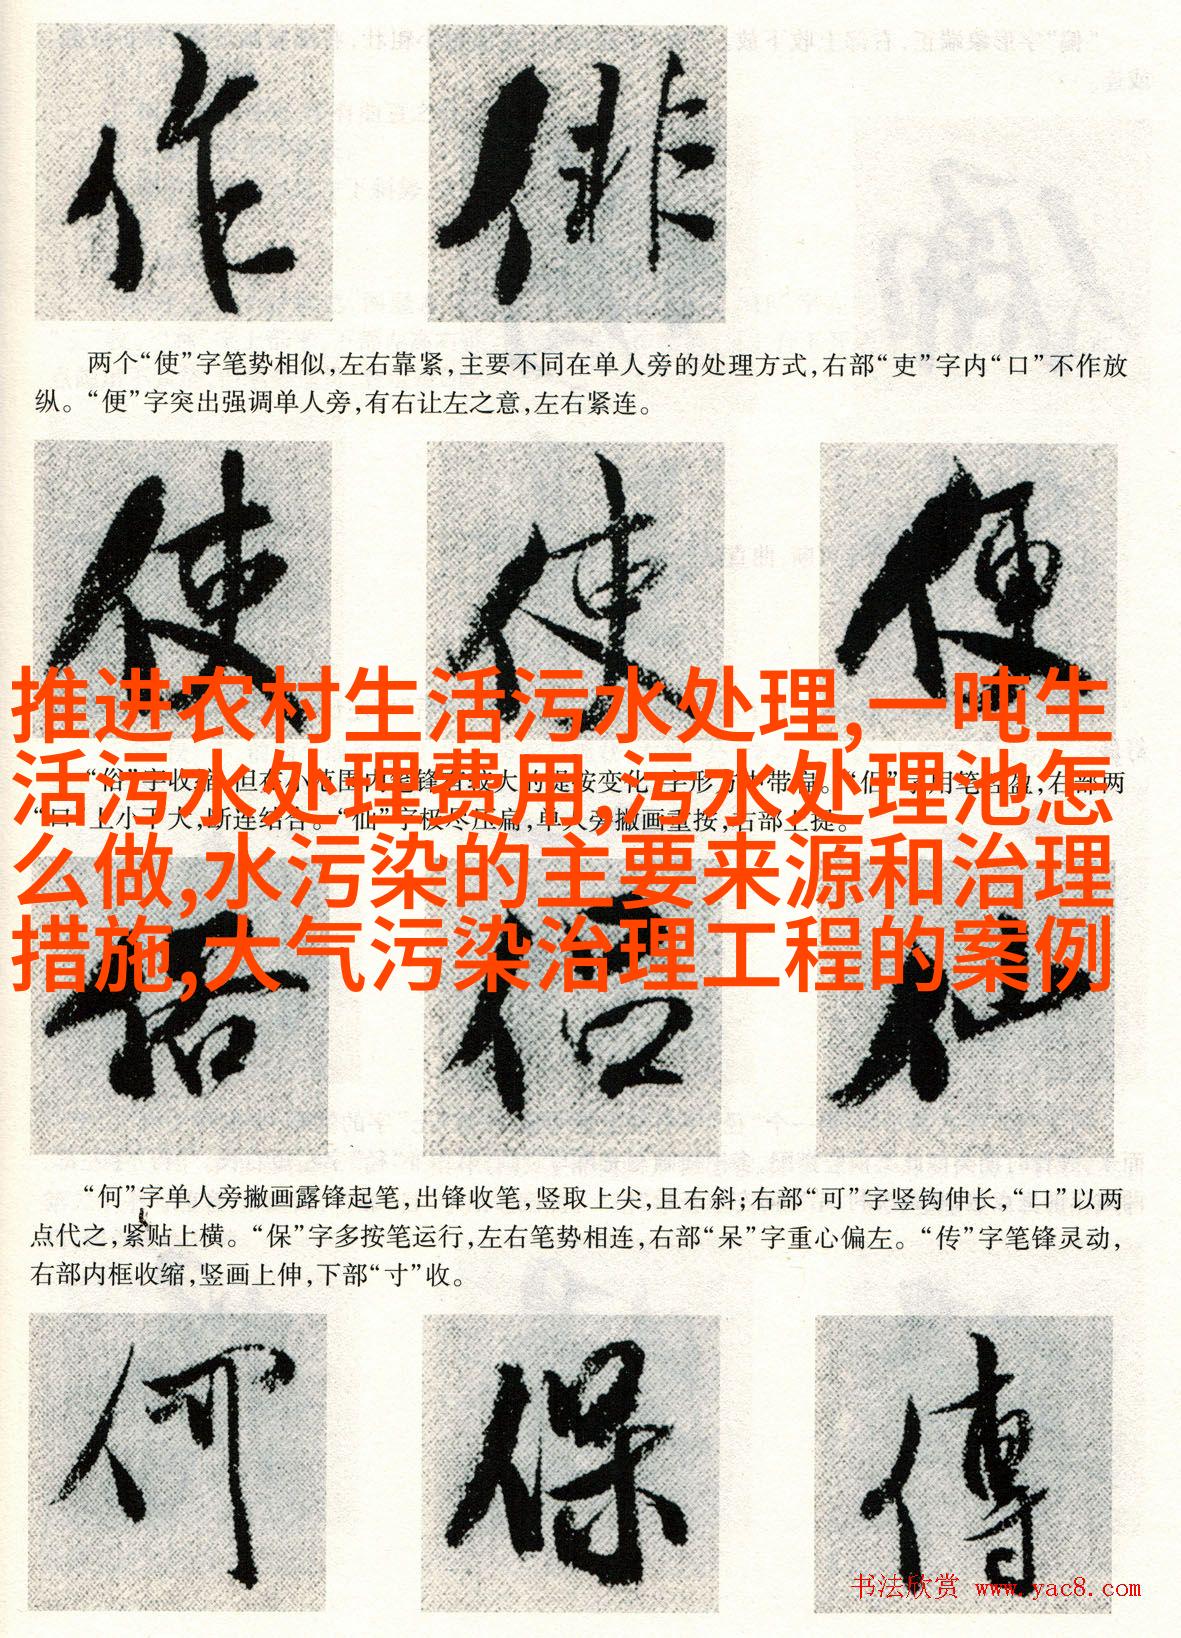 作 俳
两个“使”字笔势相似,左右靠紧,主要不同在单人旁的处理方式,右部“吏”字内“口”不作放
纵。“便”字突出强调单人旁,有右让左之意,左右紧连。
使 使 便
推进农村生活污水处理,一吨生
活污水处理费用,污水处理池怎
么做,水污染的主要来源和治理
措施,大气污染治理工程的案例
“俗”字收缩,但在小范围内笔锋有较大的提按变化,字形方中带扁。“侣”字用笔轻盈,右部两
“口”上小下大,断连结合。“仙”字极尽压扁,单人旁撇画重按,右部上提。
俗 侣 仙
“何”字单人旁撇画露锋起笔,出锋收笔,竖取上尖,且右斜;右部“可”字竖钩伸长,“口”以两
点代之,紧贴上横。“保”字多按笔运行,左右笔势相连,右部“呆”字重心偏左。“传”字笔锋灵动,
右部内框收缩,竖画上伸,下部“寸”收。
何 保 傳
书法欣赏 www.yac8.com